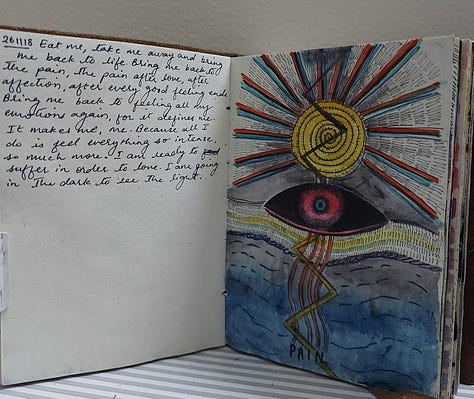 261118 Eat me, take me away and bring
me back to life. Bring me back to
the pain, the pain after love, after
affection, after every good feeling ends.
Bring me back to feeling all my
emotions again, for it defines me.
It makes me, me. Because all I
do is feel everything so intense.
so much more. I am ready to
suffer in order to love. I am going
in the dark to see the light.
PAIN